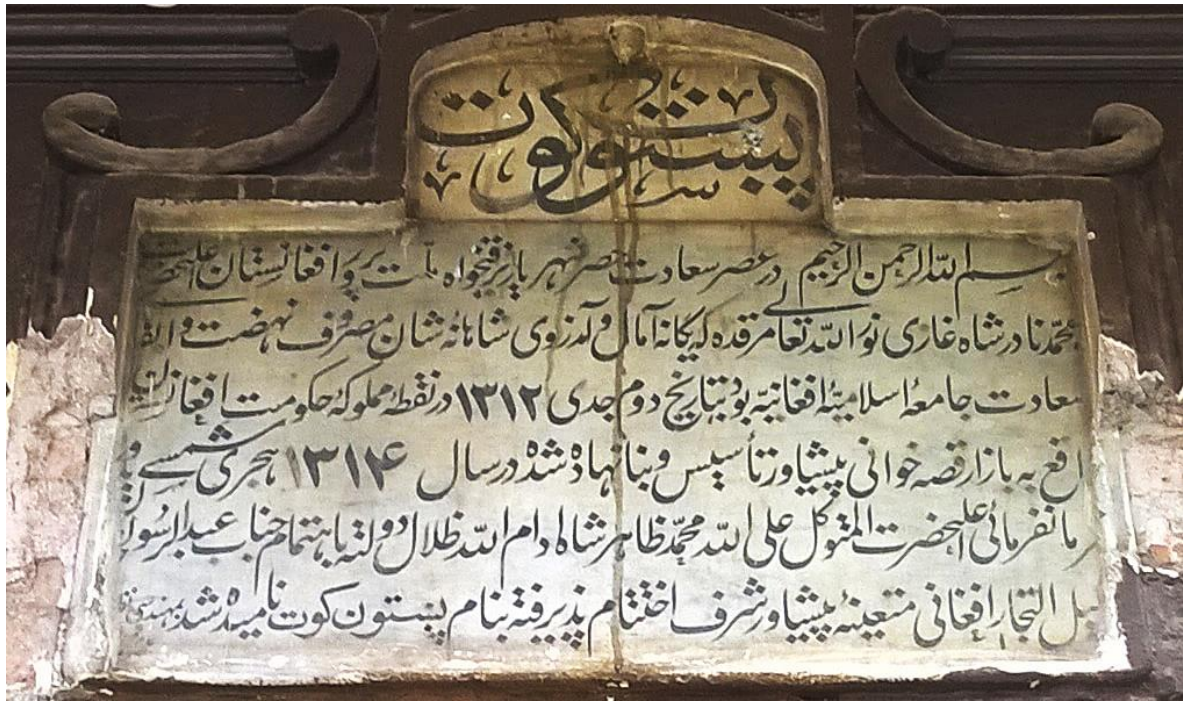 پښتونکوت
بسم الله الرحمن الرحیم در عصر سعادت حصر شهریار ترقیخواه ملت پرور افغانستان علیحضرت
محمد نادر شاه غازی نورالله تعالی مرقده که یگانه آمال و آرزوی شاهانه شان مصروف نهضت و
سعادت جامعهٔ اسلامیهٔ افغانیه بود بتاریخ دوم جدی ۱۳۱۲ در نقطه مملوکهٔ حکومت
واقع به بازار قصه خوانی پیشاور تأسیس و بنا نهاده شده در سال ۱۳۱۴ هجری شمسی
فرمانفرمائی اعلیحضرت المتوکل علی الله محمد ظاهر شاه ادام الله ظلال دولته باهتمام جناب عبدالرسول
التجار افغانی متعینهٔ پیشاور شرف اختتام پذیرفته بنام پښتون کوت نامیده شد